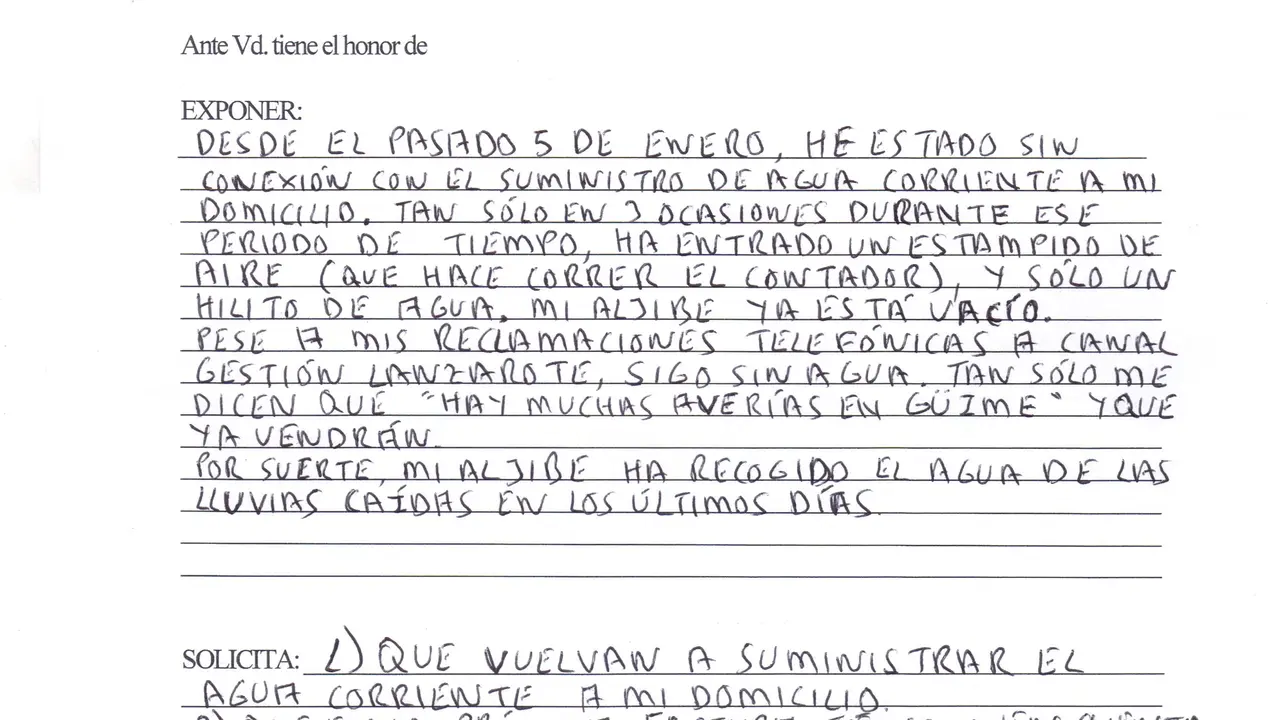 Ante Vd. tiene el honor de
EXPONER:
DESDE EL PASADO 5 DE ENERO, HE ESTADO SIN
CONEXIÓN CON EL SUMINISTRO DE AGUA CORRIENTE A MI
DOMICILIO. TAN SÓLO EN 3 OCASIONES DURANTE ESE
PERIODO DE TIEMPO, HA ENTRADO UN ESTAMPIDO DE
AIRE (QUE HACE CORRER EL CONTADOR), Y SÓLO UN
HILITO DE AGUA. MI ALJIBE YA ESTÁ VACÍO.
PESE A MIS RECLAMACIONES TELEFÓNICAS A CANAL
GESTIÓN LANZAROTE, SIGO SIN AGUA. TAN SÓLO ME
DICEN QUE "HAY MUCHAS AVERÍAS EN GÜIME" Y QUE
YA VENDRÁN.
POR SUERTE, MI ALJIBE HA RECOGIDO EL AGUA DE LAS
LLUVIAS CAÍDAS EN LOS ÚLTIMOS DÍAS.
SOLICITA: 1) QUE VUELVAN A SUMINISTRAR EL
AGUA CORRIENTE A MI DOMICILIO.